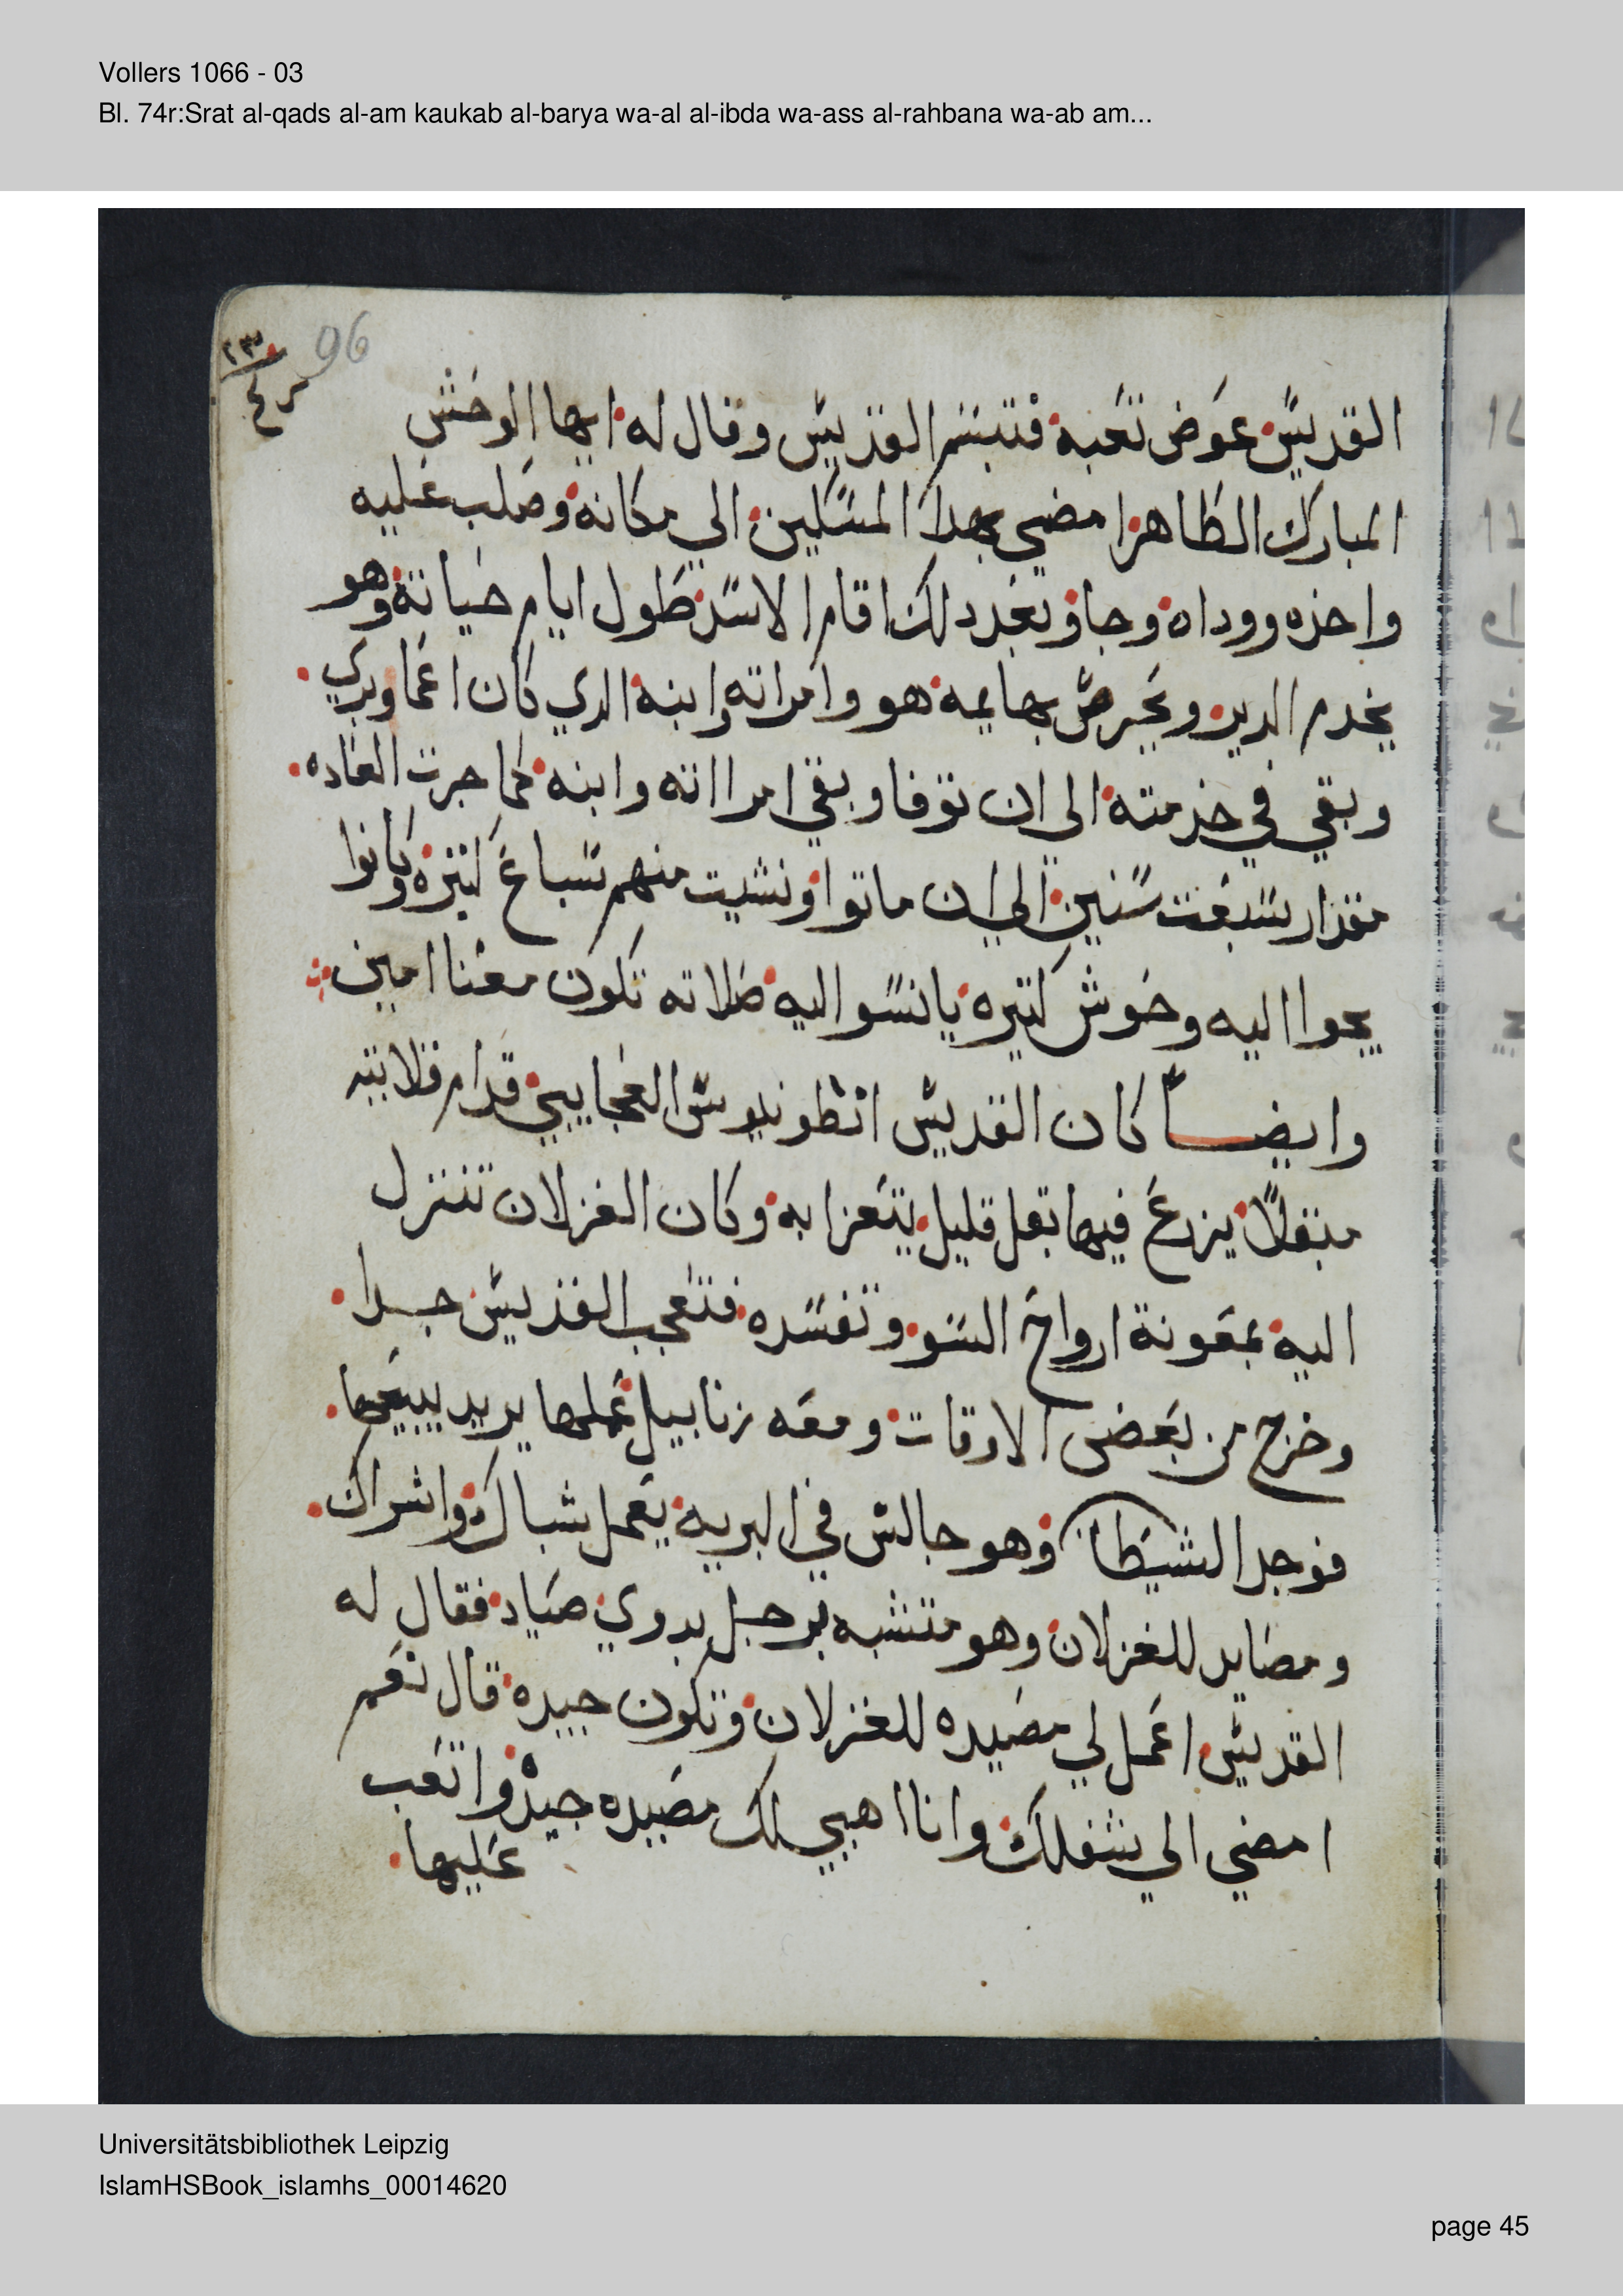 Vollers 1066 - 03
Bl. 74r:Srat al-qads al-am kaukab al-barya wa-al al-ibda wa-ass al-rahbana wa-ab am...
96
القديس عوض تعبه فتبسم القديس وقال له ايها الوحش
المبارك الطاهر امضي بهدا المسكين الي مكانه وصلب عليه
واخذه ووداه وجا وبعد دلك اقام الاسد طول ايام حياته وهو
يخدم الدير ويحرص بهايمه هو وامراته وابنه الدي كان اعما وبري
وبقي في خدمته الي ان توفا وبقي امرااته وابنه كما جرت العاده
مقدار سبعت سنين الي ان ماتوا ونشيت منهم سباع كتيره وكانوا
يجوا اليه وحوش كتيره يانسوا اليه صلاته تكون معنا امين
وايضاً كان القديس انطونيوس العجايبي قدام قلايته
مبقلاً يزرع فيها بقل قليل يتعزا به وكان الغزلان تنزل
اليه بمعونة ارواح السو وتفسده فتعجب القديس جدا
وخرج من بعض الاوقات ومعه زنابيل عملها يريد يبيعها
فوجد الشيطان وهو جالس في البريه يعمل شباك واشراك
ومصايد للغزلان وهو متشبه برجل بدوي صياد فقال له
القديس اعمل لي مصيده للغزلان وتكون جيده قال نعم
امضي الي شغلك وانا اهيي لك مصيده جيده واتعب
عليها
Universitätsbibliothek Leipzig
IslamHSBook_islamhs_00014620
page 45